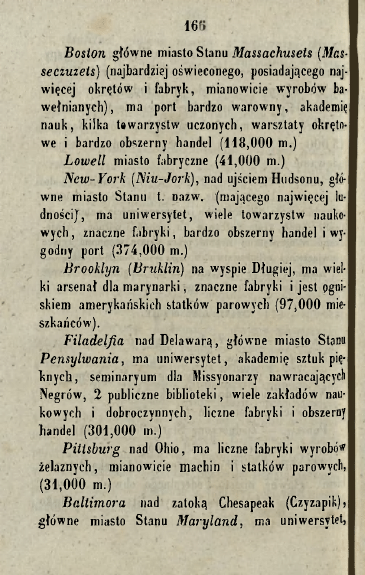 166
Boston główne miasto Stanu Massachusets (Mas-
seczuzets) (najbardziej oświeconego, posiadającego naj-
więcej okrętów i fabryk, mianowicie wyrobów ba-
wełnianych), ma port bardzo warowny, akademię
nauk, kilka towarzystw uczonych, warsztaty okręto-
we i bardzo obszerny handel (118,000 m.)
Lowell miasto fabryczne (41,000 m.)
New-York (Niu-Jork), nad ujściem Hudsonu, głó-
wne miasto Stanu t. nazw. (mającego najwięcej lu-
dności), ma uniwersytet, wiele towarzystw nauko-
wych, znaczne fabryki, bardzo obszerny handel i wy-
godny port (374,000 m.)
Brooklyn (Bruklin) na wyspie Długiej, ma wiel-
ki arsenał dla marynarki, znaczne fabryki i jest ogni-
skiem amerykańskich statków parowych (97,000 mie-
szkańców).
Filadelfia nad Delawarą, główne miasto Stanu
Pensylwania, ma uniwersytet, akademię sztuk pię-
knych, seminaryum dla Missyonarzy nawracających
Negrów, 2 publiczne biblioteki, wiele zakładów nau-
kowych i dobroczynnych, liczne fabryki i obszerny
handel (301,000 m.)
Pittsburg nad Ohio, ma liczne fabryki wyrobów
żelaznych, mianowicie machin i statków parowych,
(31,000 m.)
Baltimora nad zatoką Chesapeak (Czyzapik),
główne miasto Stanu Maryland, ma uniwersytet,